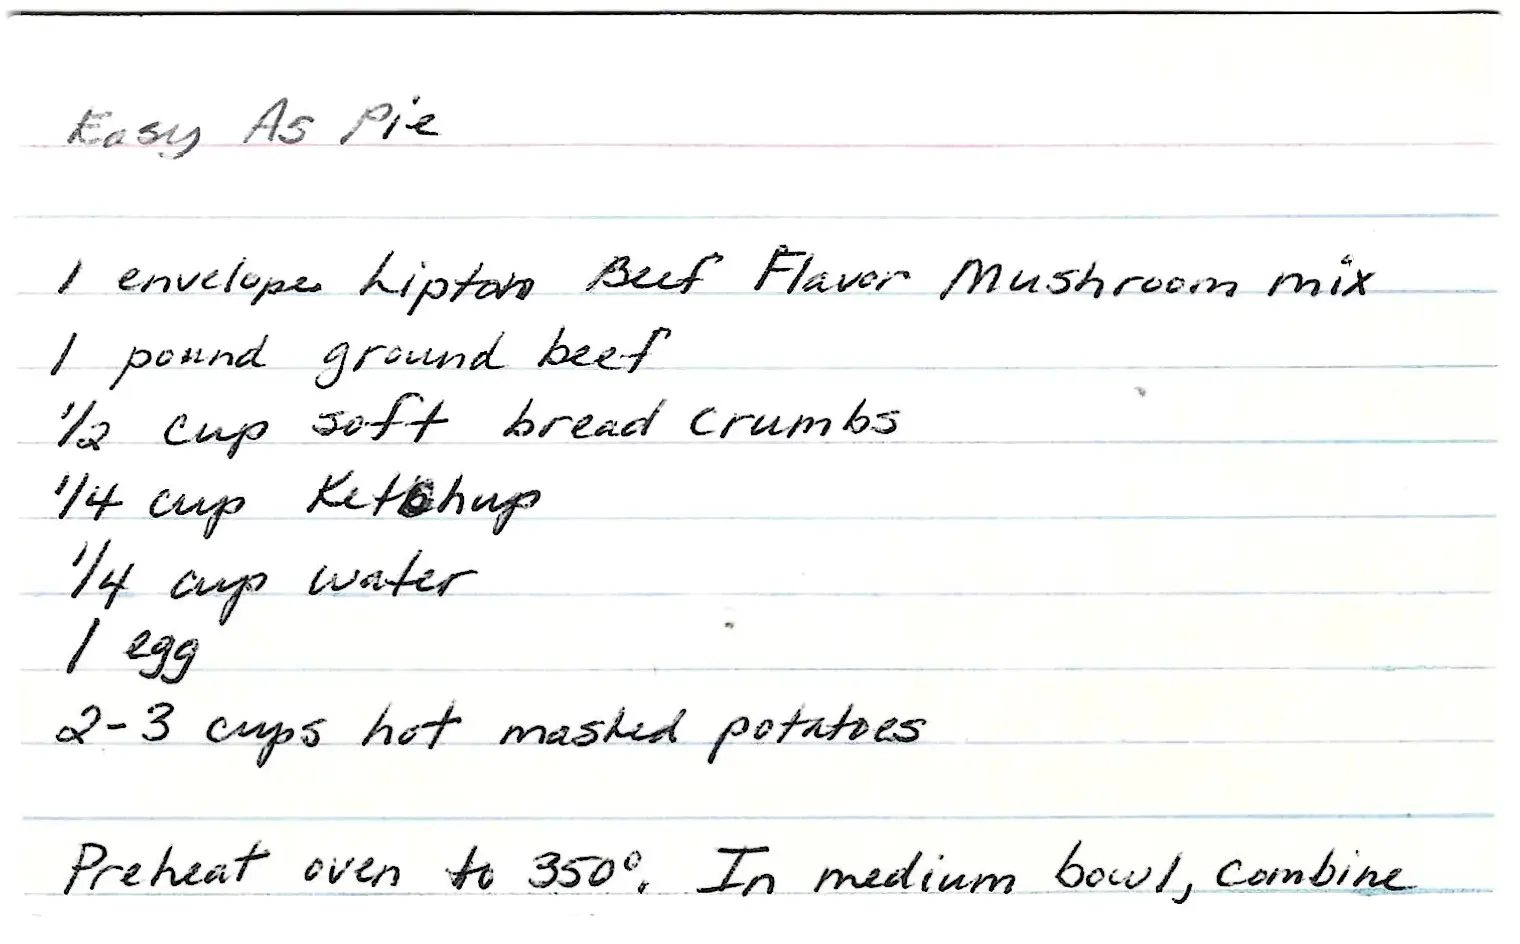 Easy As Pie
1 envelope Lipton Beef Flavor Mushroom mix
1 pound ground beef
1/2 cup soft bread crumbs
1/4 cup Ketchup
1/4 cup water
1 egg
2-3 cups hot mashed potatoes
Preheat oven to 350°. In medium bowl, combine